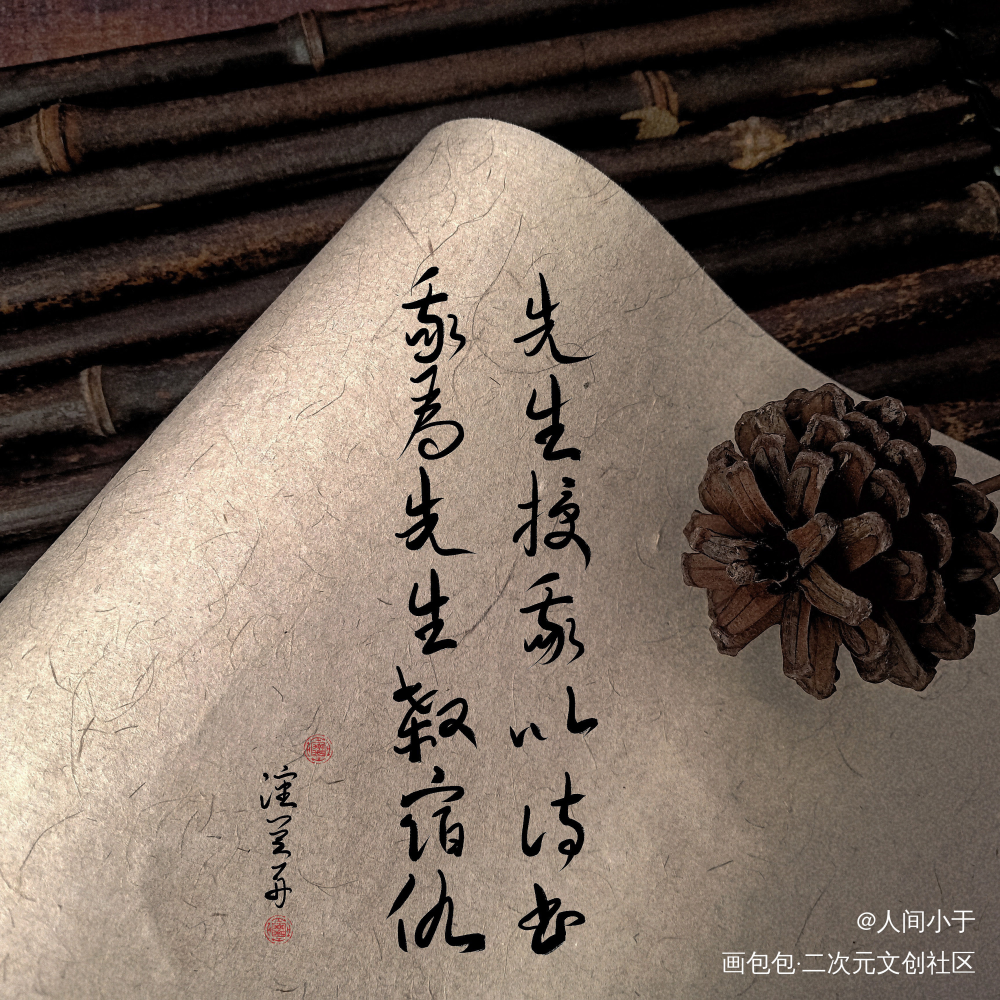 先生授我以诗书
我為先生殺宿仇
兰舟
@人间小于
画包包·二次元文创社区